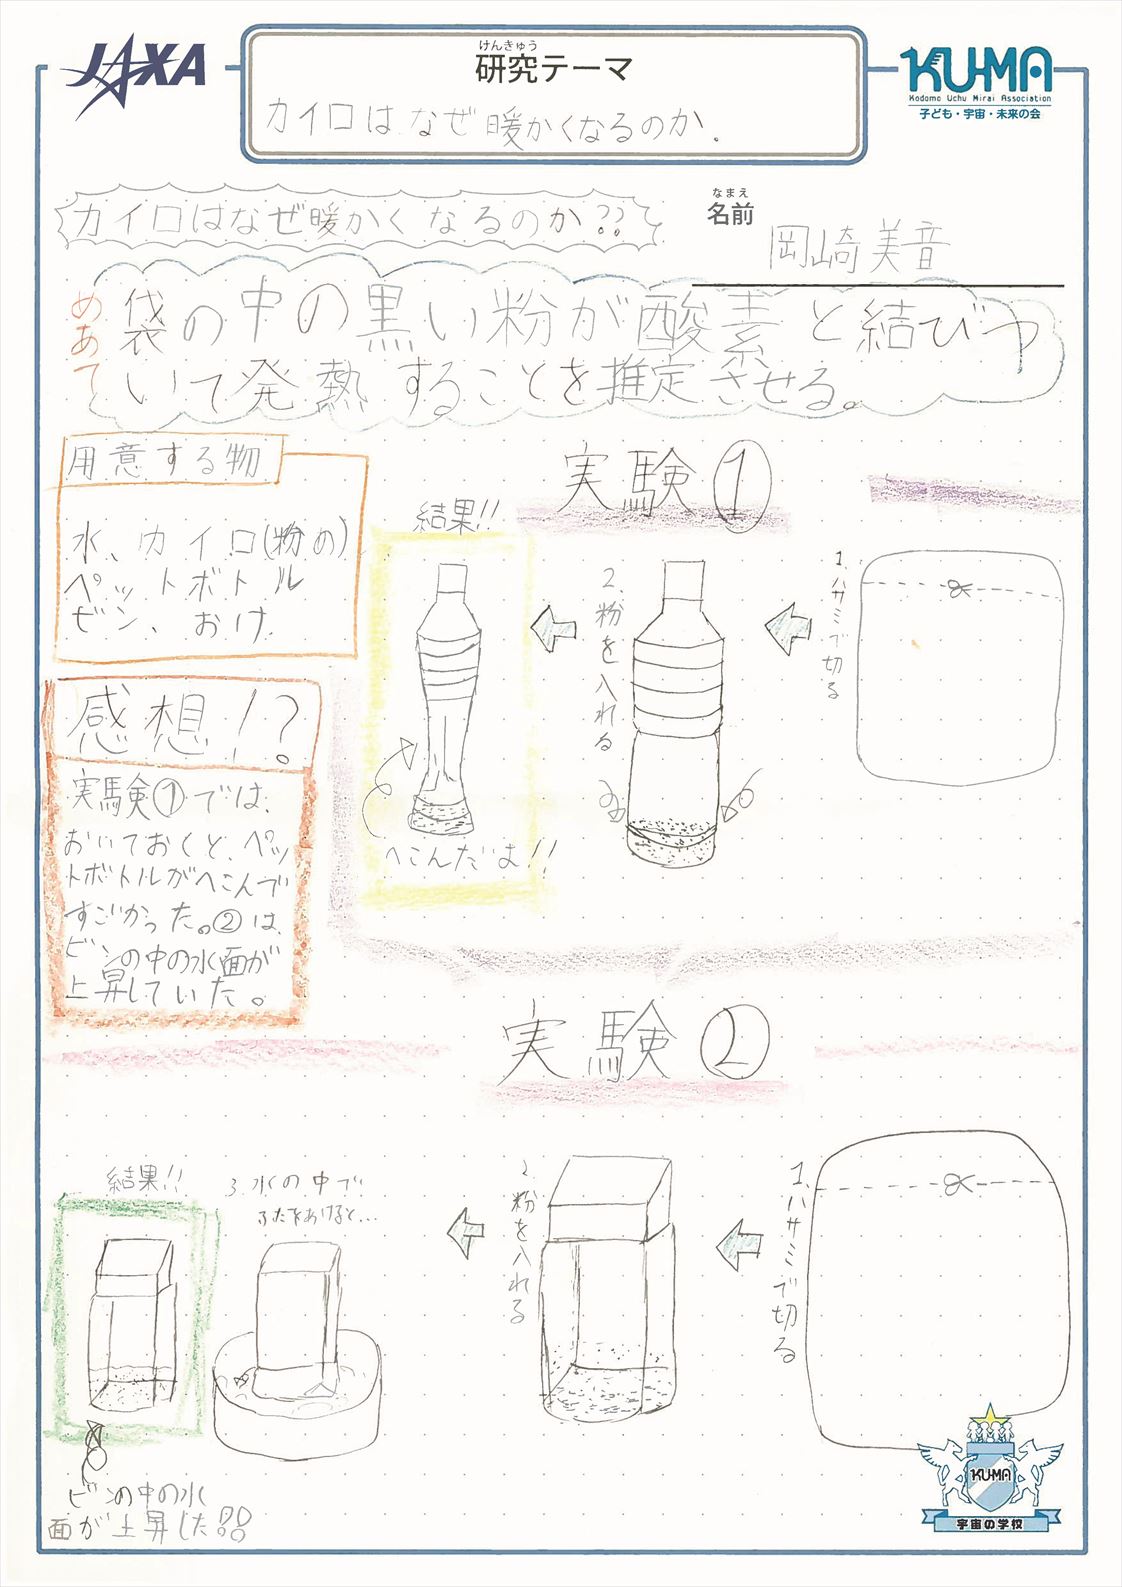 JAXA
けんきゅう
研究テーマ
カイロはなぜ暖かくなるのか.
KU-MA
Kodomo Uchu Mirai Association
子ども・宇宙・未来の会
カイロはなぜ暖かくなるのか??
なまえ
名前
岡崎美音
めあて
袋の中の黒い粉が酸素と結びつ
いて発熱することを推定させる。
用意する物
水、カイロ(粉の)
ペットボトル
ビン、おけ
実験①
1.ハサミで切る
2.粉を入れる
結果!!
へこんだよ!!
感想!?
実験①では、
おいておくと、ペッ
トボトルがへこんで
すごかった。②は、
ビンの中の水面が
上昇していた。
実験②
1.ハサミで切る
2.粉を入れる
3.水の中で
ふたをあけると...
結果!!
ビンの中の水
面が上昇した!!
KU-MA
宇宙の学校